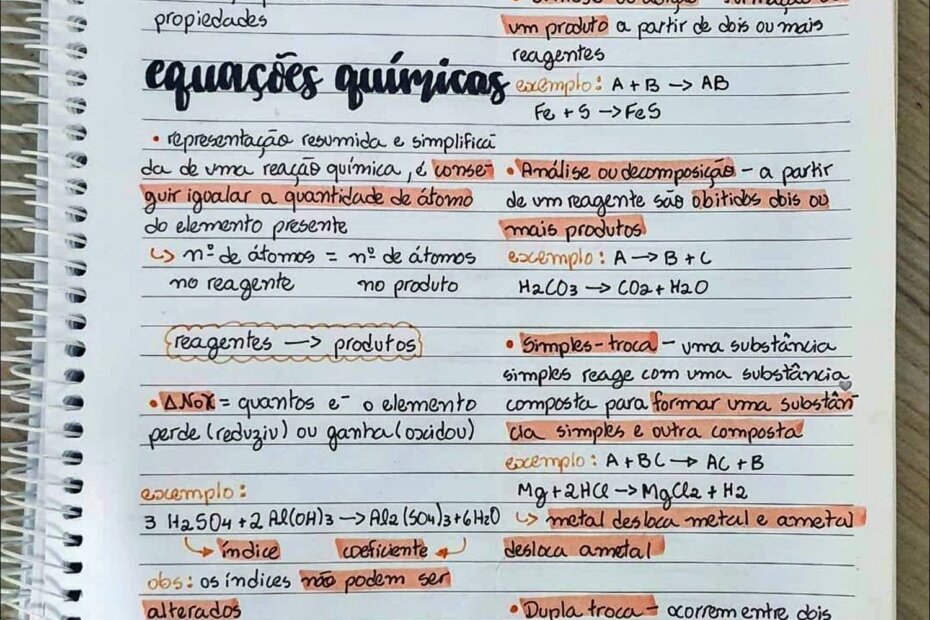 propriedades
equações químicas
• representação resumida e simplifica
da de uma reação química, é conse-
guir igoalar a quantidade de átomo
do elemento presente
↳ nº de átomos = nº de átomos
no reagente no produto
reagentes → produtos
• ΔNox = quantos e⁻ o elemento
perde (reduziu) ou ganha (oxidou)
exemplo:
3 H2SO4 + 2 Al(OH)3 → Al2(SO4)3 + 6H2O
índice coeficiente
obs: os índices não podem ser
alterados
um produto a partir de dois ou mais
reagentes
exemplo: A + B → AB
Fe + S → FeS
• Análise ou decomposição - a partir
de um reagente são obitidos dois ou
mais produtos
exemplo: A → B + C
H2CO3 → CO2 + H2O
• Simples-troca - uma substância
simples reage com uma substância
composta para formar uma substân
cia simples e outra composta
exemplo: A + BC → AC + B
Mg + 2HCl → MgCl2 + H2
↳ metal desloca metal e ametal
desloca ametal
• Dupla troca - ocorrem entre dois